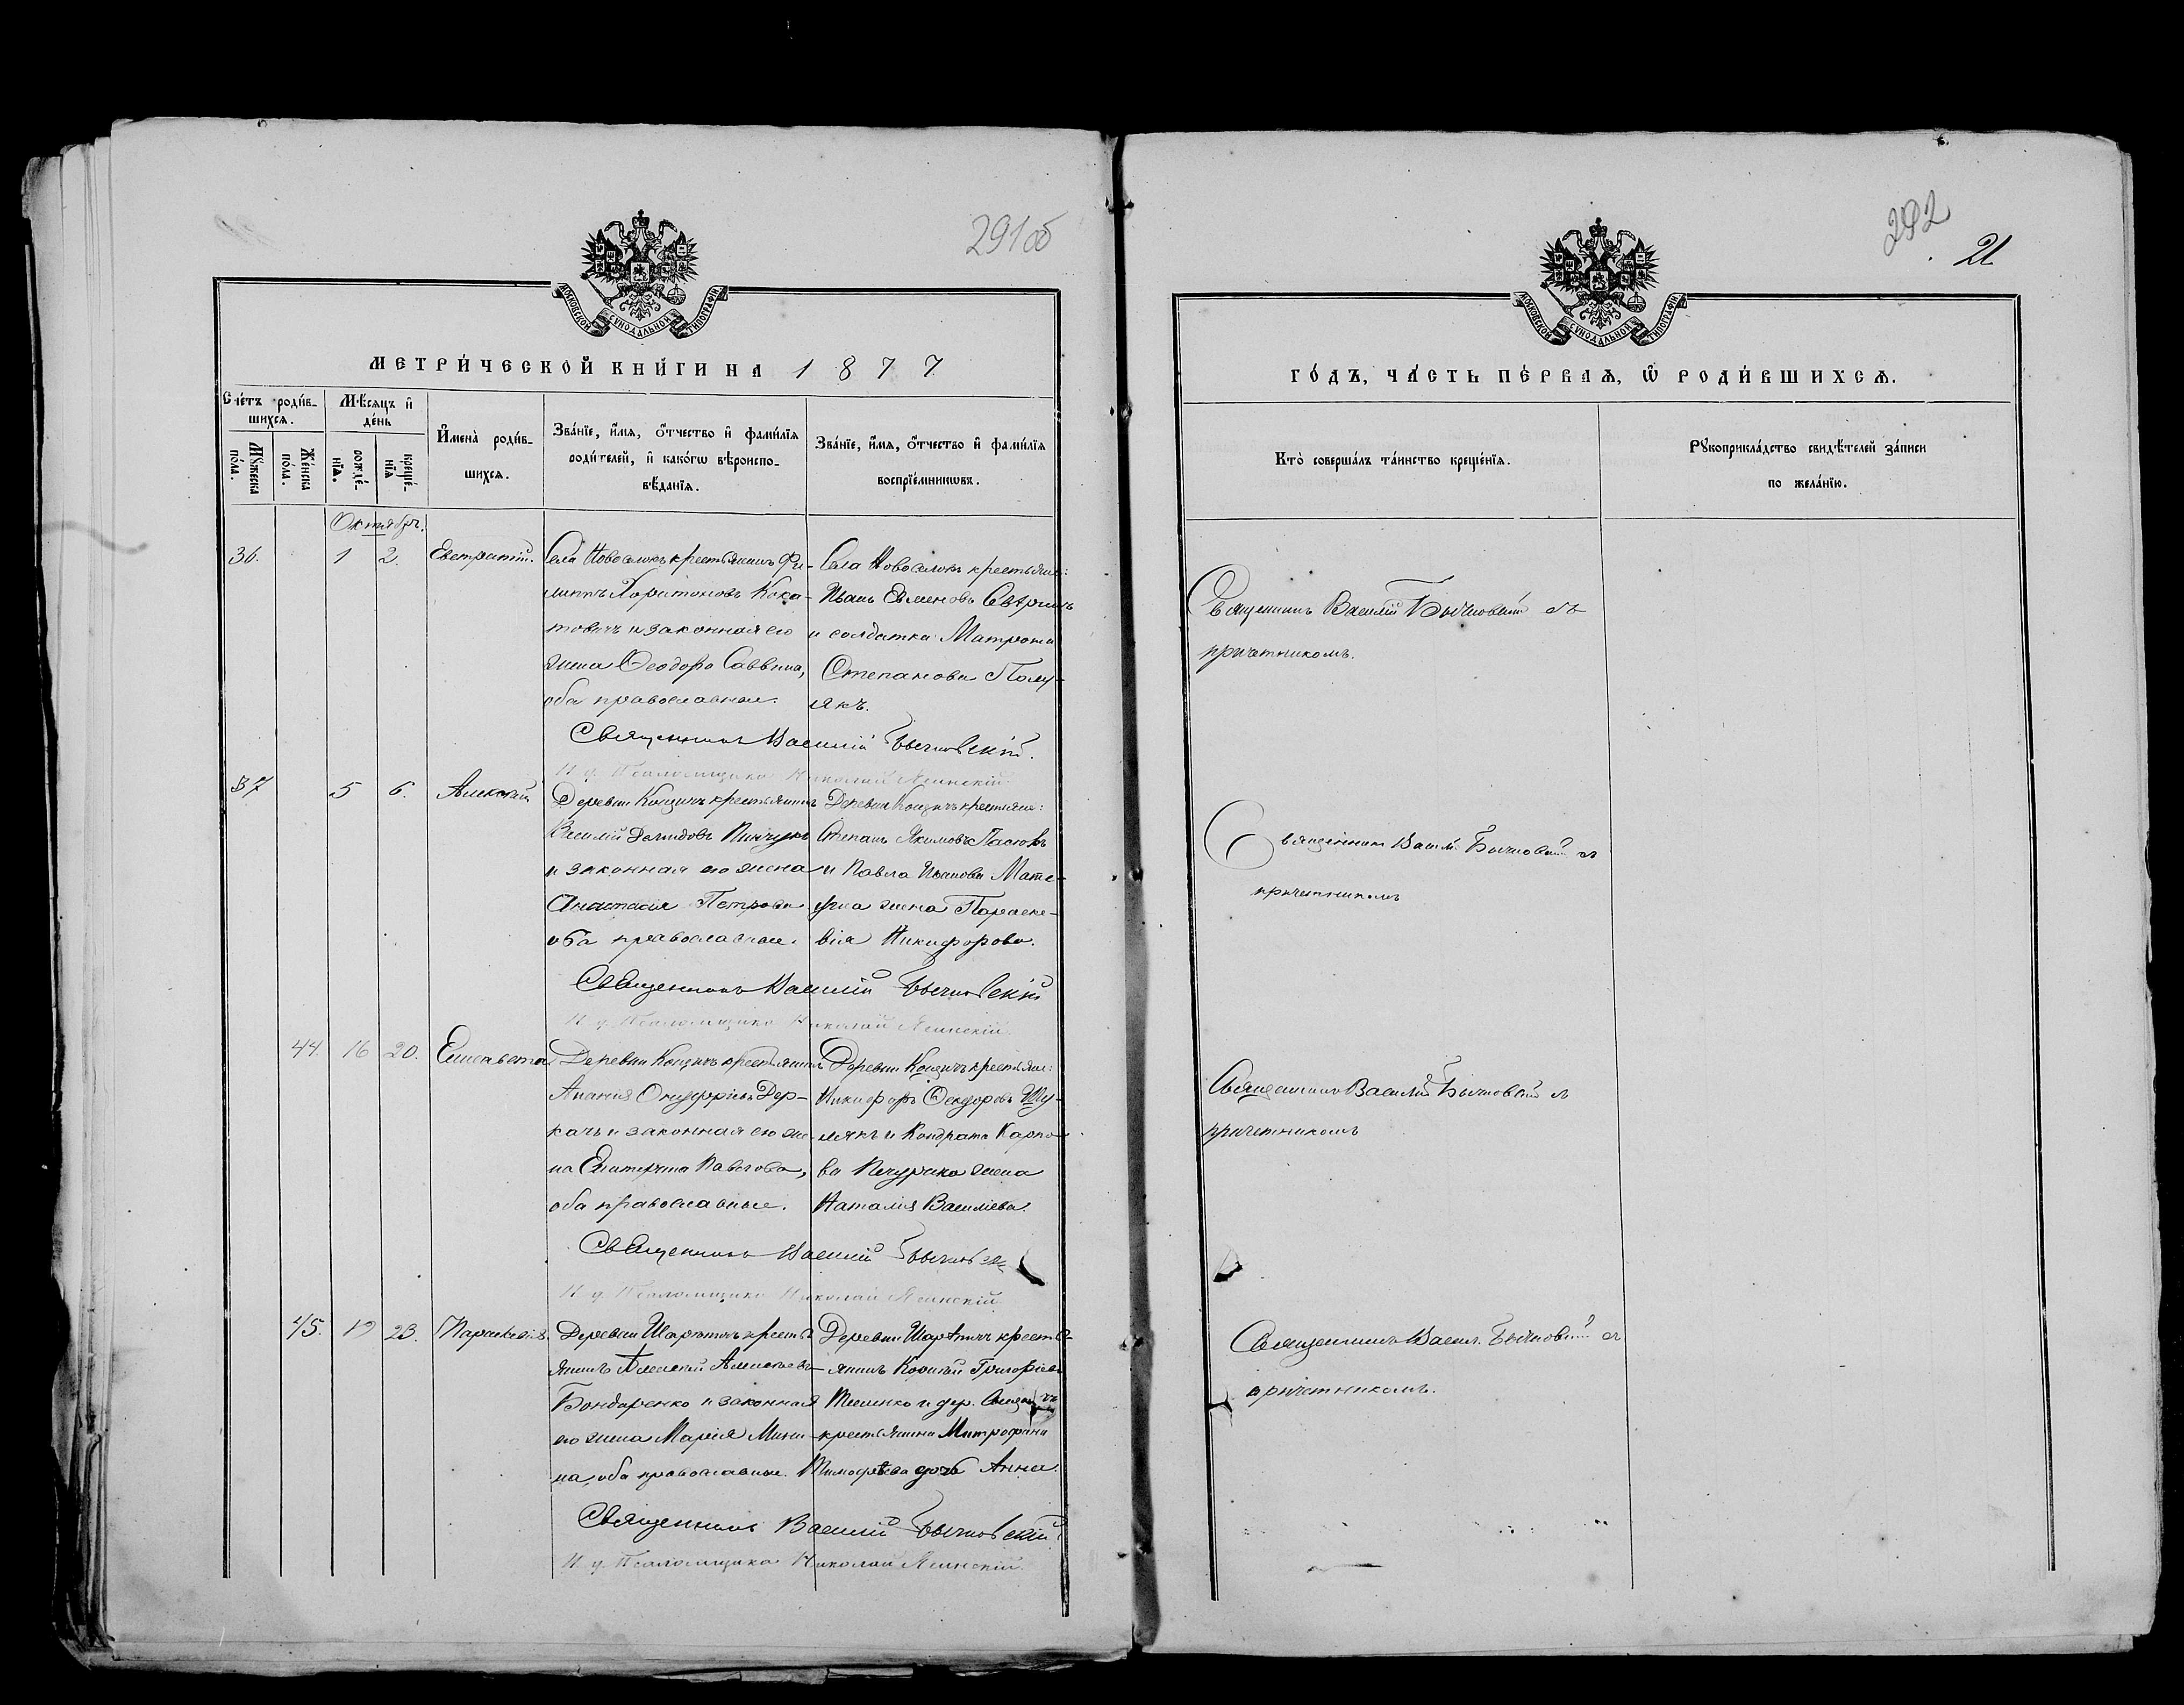 291об
МОСКОВСКОЙ СѴНОДАЛЬНОЙ ТИПОГРАФІИ
МЕТРИ́ЧЕСКОЙ КНИ́ГИ НА 1877
Сче́тъ роди́в-
шихсѧ.
Мꙋ́жеска по́ла.
Же́нска по́ла.
Мѣ́сѧцъ и҆ де́нь
рожде́-нїѧ.
креще́-нїѧ
И҆мена̀ роди́в-
шихсѧ.
Зва́нїе, и҆́мѧ, ѻ҆́тчество и҆ фами́лїѧ
роди́телей, и҆ како́гѡ вѣроиспо-
вѣ́данїѧ.
Зва́нїе, и҆́мѧ, ѻ҆́тчество и҆ фами́лїѧ
воспрїе́мникѡвъ.
Октябрь.
36. 1 2. Евстратій.
Села Новоселокъ крестьянинъ Фи-
липпъ Харитоновъ Кока-
товичъ и законная его
жена Ѳеодора Саввина,
оба православные.
Села Новоселокъ крестьян:
Иванъ Семеновъ
и солдатка Матрона
Степанова Полу-
якъ.
Священникъ Василій Бычковскій.
И. д. Псаломщика Николай Ясинскій.
37 5 6. Алексѣй
Деревни Концичъ крестьянинъ
Василій Демидовъ Пинчукъ
и законная его жена
Анастасія Петрова
оба православные.
Деревни Концичъ крестьяне:
Степанъ Якимовъ Пасюкъ
и Павла Иванова Мате-
жена Параске-
вія Никифорова.
Священникъ Василій Бычковскій
И. д. Псаломщика Николай Ясинскій.
44. 16 20. Елисавета
Деревни Концичъ крестьянинъ
Ананія Онуфріевъ Дер-
качъ и законная его же-
на Екатерина Павлова,
оба православные.
Деревни Концичъ крестьяне:
Никифоръ Ѳеодоровъ Шу-
лякъ и Кондрата Карпо-
ва Печурика жена
Наталія Васильева.
Священникъ Василій
И. д. Псаломщика Николай Ясинскій.
45. 19 23. Параскевія.
Деревни Шарѣтичъ кресть-
янинъ Алексѣй Алексѣевъ
Бондаренко и законная
его жена Марія Мини-
на, оба православные.
Деревни Шарѣтичъ кресть-
янинъ Корнѣй Григорьевъ
и дер.
крестьянина Митрофана
Тимофѣева дочь Анна.
Священникъ Василій Бычковскій
И. д. Псаломщика Николай Ясинскій.
292
21
МОСКОВСКОЙ СѴНОДАЛЬНОЙ ТИПОГРАФІИ
ГО́ДЪ, ЧА́СТЬ ПЕ́РВАѦ, Ѽ РОДИ́ВШИХСѦ.
Кто̀ соверша́лъ та́инство креще́нїѧ.
Рꙋкоприкла́дство свидѣ́телей за́писи
по жела́нїю.
Священникъ Василій Бычковскій съ
причетникомъ.
Священникъ Васил. Бычковскій съ
причетникомъ
Священникъ Василій Бычковскій съ
причетникомъ
Священникъ Васил. Бычковскій съ
причетникомъ.